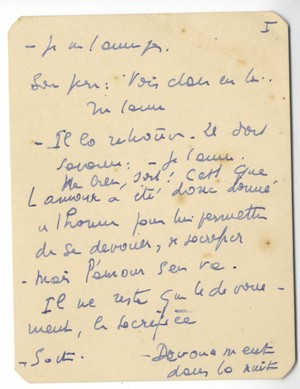 I
- Je
Son père : Vois clair en toi.
- Il la retrouve. Il doit
savoir : - Je l'aime.
Hé bien, soit ! C'est que
L'amour a été donc donné
à l'homme pour lui permettre
de se dévouer, se sacrifier
- mais l'amour s'en va.
Il ne reste que le dévoue-
ment, le sacrifice
- Soit.
- Dévouement
dans la nuit